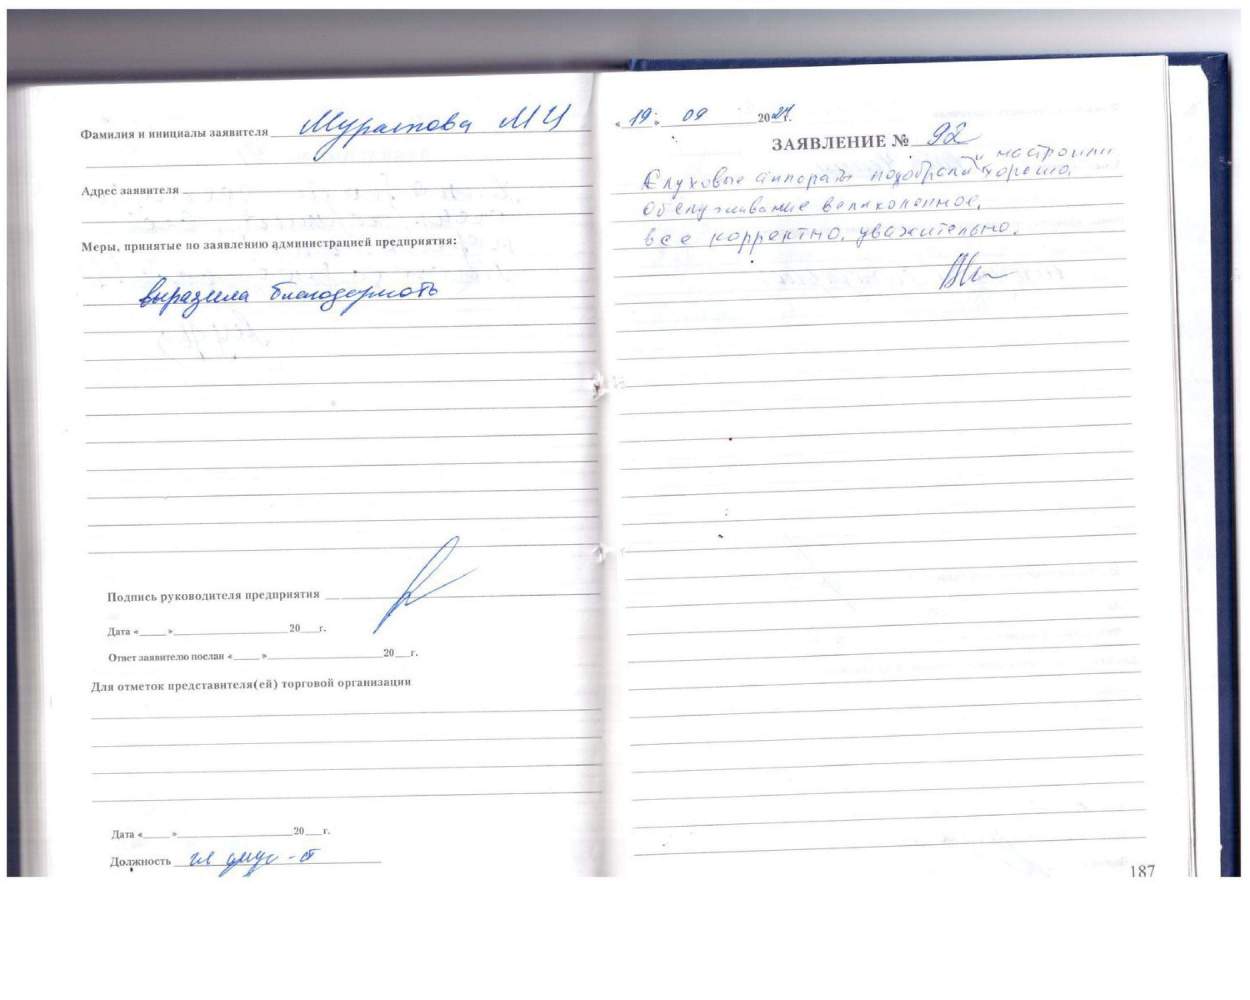 Фамилия и инициалы заявителя Муратова М И
Адрес заявителя
Меры, принятые по заявлению администрацией предприятия:
выразила благодарность
Подпись руководителя предприятия
Дата «____» ____ 20__г.
Ответ заявителю послан «____» ____ 20__г.
Для отметок представителя(ей) торговой организации
Дата «____» ____ 20__г.
Должность гл
«19» 09 2024г.
ЗАЯВЛЕНИЕ № 92
Слуховые аппараты подобрали и настроили хорошо.
Обслуживание великолепное,
все корректно, уважительно.
187